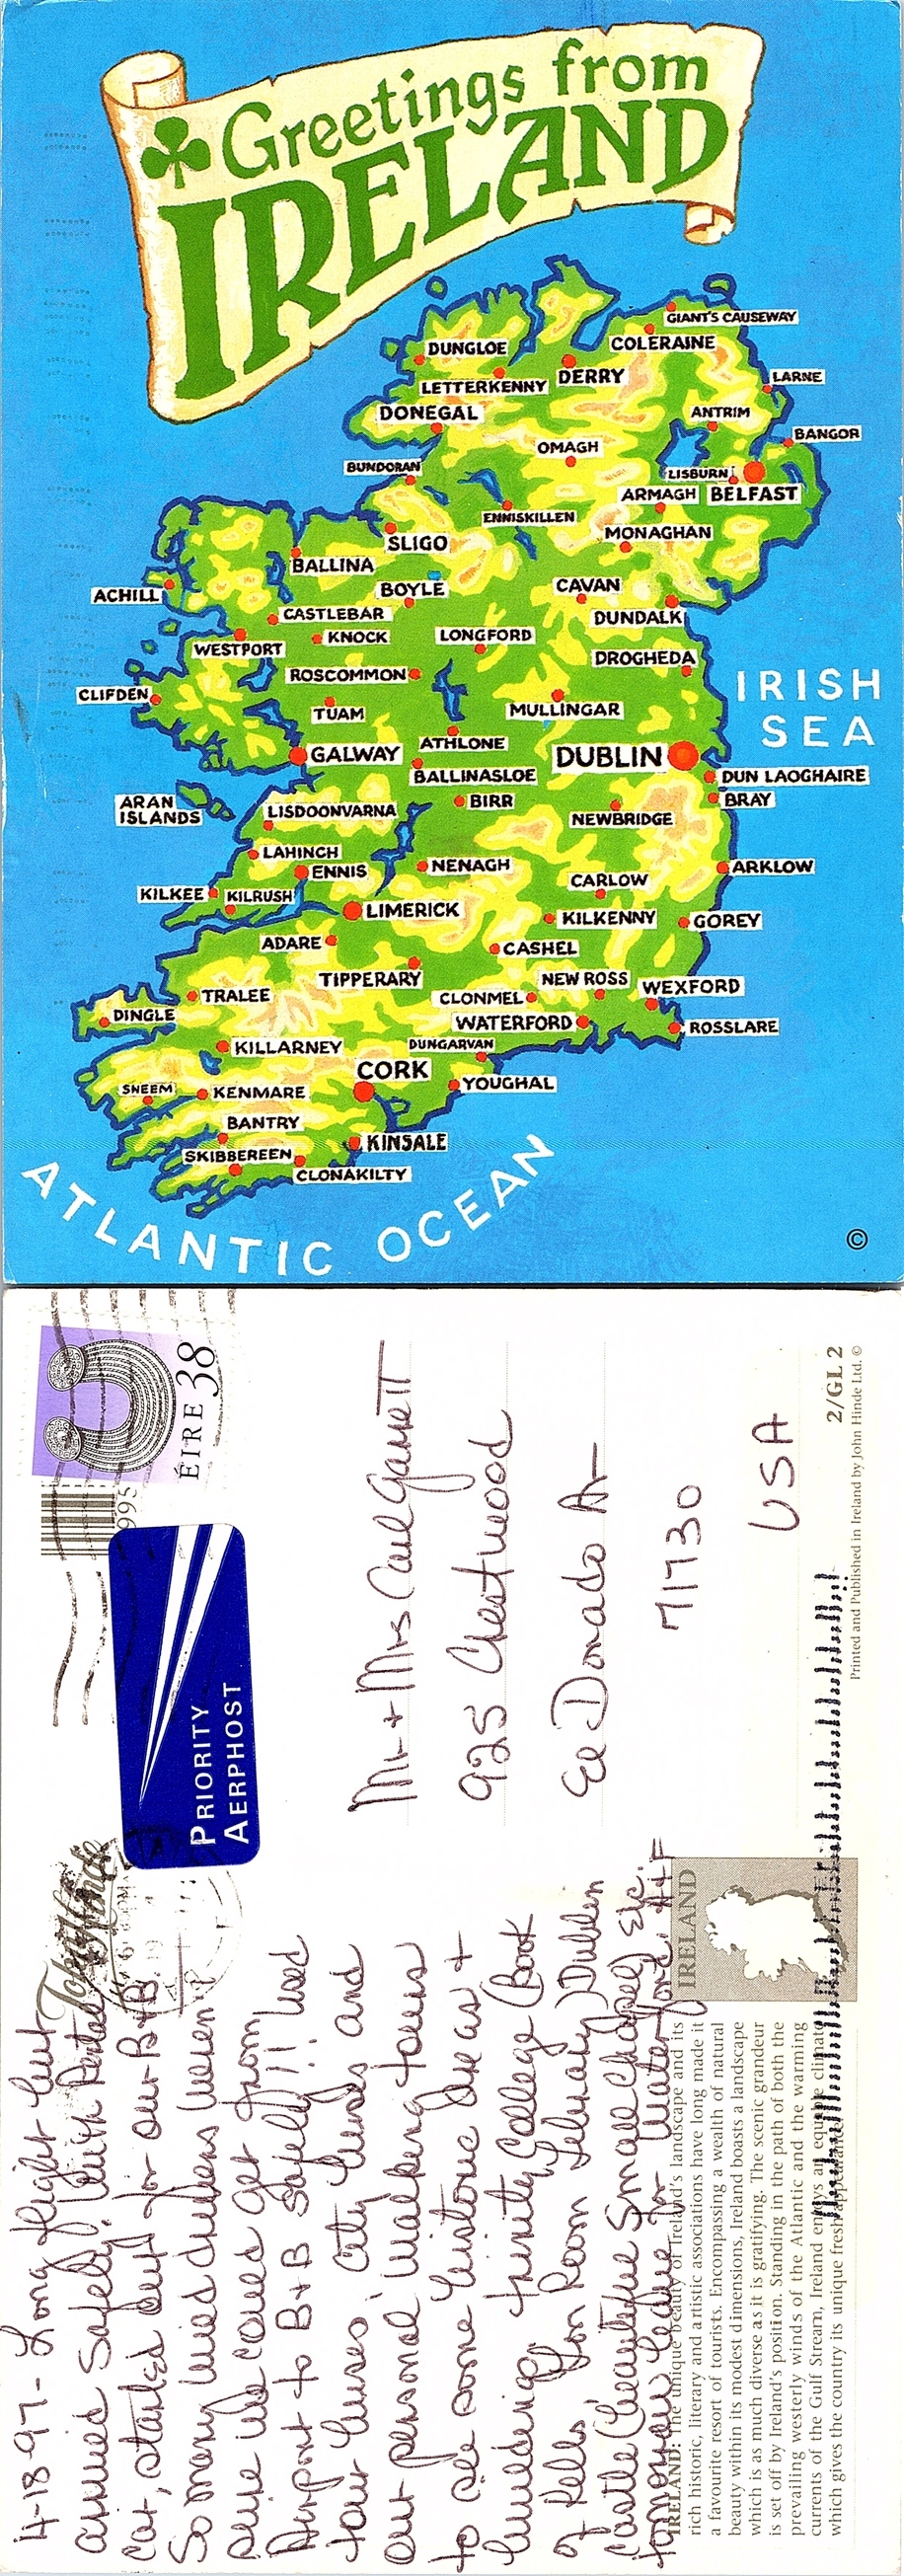 Greetings from
IRELAND
GIANT'S CAUSEWAY
COLERAINE
DUNGLOE
LETTERKENNY
DERRY
LARNE
DONEGAL
ANTRIM
BANGOR
OMAGH
BUNDORAN
LISBURN
ARMAGH
BELFAST
ENNISKILLEN
MONAGHAN
SLIGO
BALLINA
BOYLE
CAVAN
ACHILL
CASTLEBAR
DUNDALK
WESTPORT
KNOCK
LONGFORD
DROGHEDA
ROSCOMMON
IRISH
SEA
CLIFDEN
TUAM
MULLINGAR
GALWAY
ATHLONE
DUBLIN
BALLINASLOE
DUN LAOGHAIRE
ARAN
ISLANDS
LISDOONVARNA
BIRR
BRAY
NEWBRIDGE
LAHINCH
ENNIS
NENAGH
ARKLOW
CARLOW
KILKEE
KILRUSH
LIMERICK
KILKENNY
GOREY
ADARE
CASHEL
TIPPERARY
NEW ROSS
WEXFORD
TRALEE
CLONMEL
DINGLE
WATERFORD
ROSSLARE
KILLARNEY
DUNGARVAN
CORK
YOUGHAL
SNEEM
KENMARE
BANTRY
KINSALE
SKIBBEREEN
CLONAKILTY
ATLANTIC OCEAN
©
ÉIRE 38
995
PRIORITY
AERPHOST
Mr + Mrs Carl Garrett
925 Crestwood
El Dorado Ar
71730
USA
2/GL 2
Printed and Published in Ireland by John Hinde Ltd. ©
4-18-97 - Long flight but
arrived safely. With Rental
car, started out for our B+B.
So many wild drivers weren't
sure we could get from
Airport to B+B safely!!! Used
tour buses, city buses and
our personal walking tours
to see some historic areas +
buildings. Trinity College (Book
of Kells, Lon Room Library) Dublin
Castle (beautiful small chapel) etc.
tomorrow leave for Waterford.
IRELAND
IRELAND: The unique beauty of Ireland's landscape and its
rich historic, literary and artistic associations have long made it
a favourite resort of tourists. Encompassing a wealth of natural
beauty within its modest dimensions, Ireland boasts a landscape
which is as much diverse as it is gratifying. The scenic grandeur
is set off by Ireland's position. Standing in the path of both the
prevailing westerly winds of the Atlantic and the warming
currents of the Gulf Stream, Ireland enjoys an equable climate
which gives the country its unique fresh appearance.